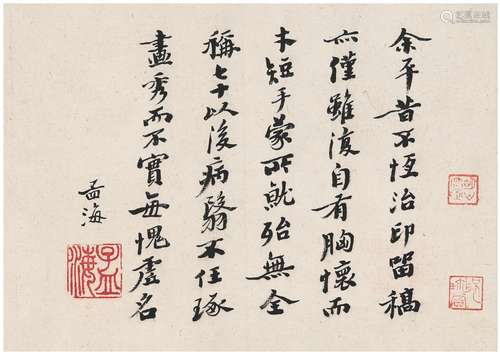 余平昔不恆治印留稿
亦僅雖復自有胸懷而
才短手蒙所就殆無全
稱七十以後病翳不任琢
畫秀而不實無愧虛名
孟海
孟海